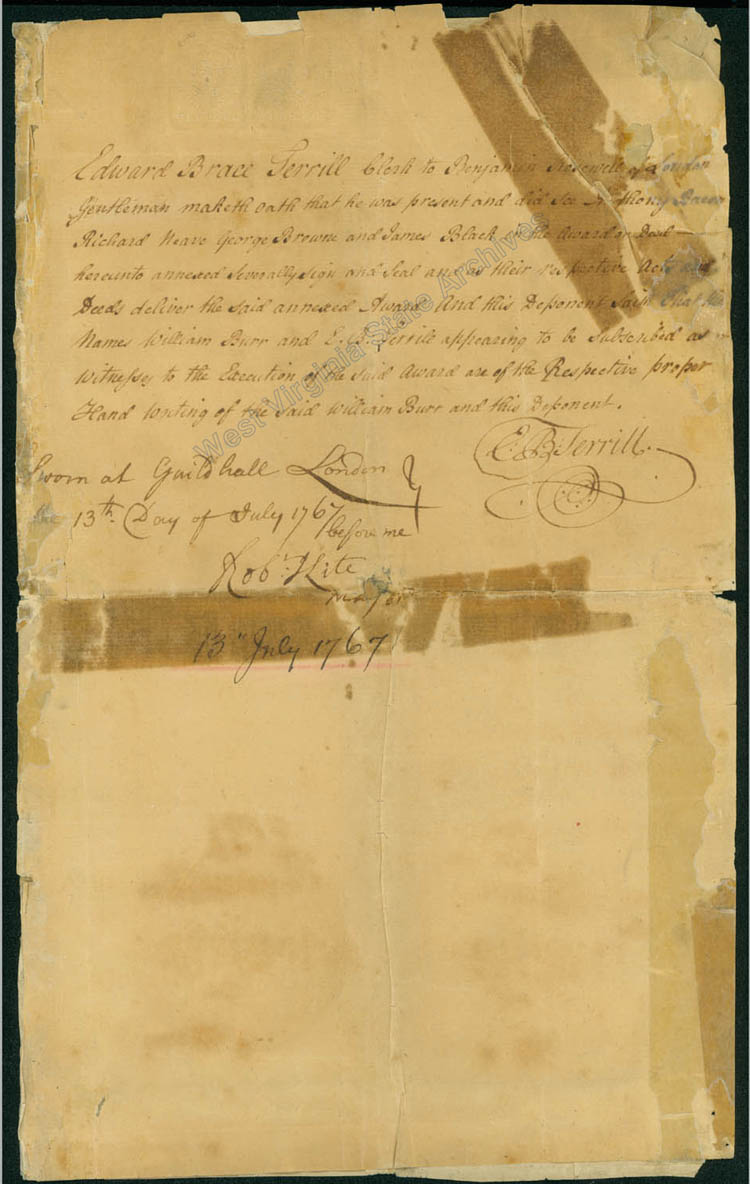 Edward Brace Terrill Clerk to Benjamin Rosewell of London
Gentleman maketh oath that he was present and did See Anthony Bacon
Richard Neave George Browne and James Black in the Award or Deed
hereunto annexed Severally Sign and Seal and as their respective Acts and
Deeds deliver the said annexed Award And this Deponent Saith that the
Names William Burr and E. B. Terrill appearing to be Subscribed as
Witnesses to the Execution of the Said Award are of the Respective proper
Hand Writing of the Said William Burr and this Deponent.
E B Terrill
Sworn at Guildhall London
the 13th Day of July 1767
before me
Robt. Kite
Mayor
13" July 1767
West Virginia State Archives